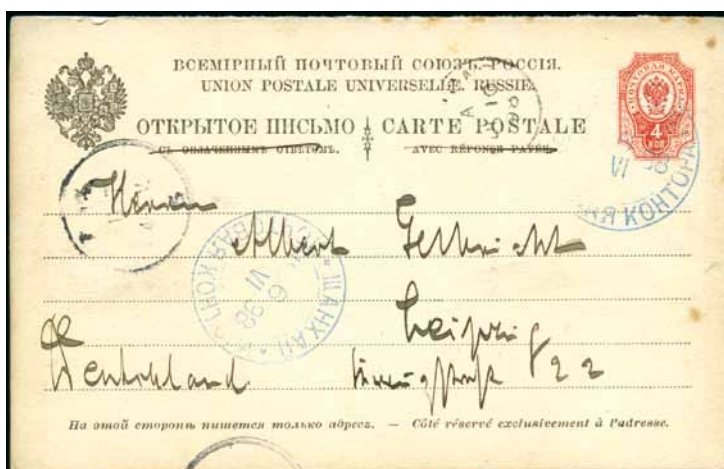 ВСЕМІРНЫЙ ПОЧТОВЫЙ СОЮЗЪ. РОССІЯ.
UNION POSTALE UNIVERSELLE. RUSSIE.
ОТКРЫТОЕ ПИСЬМО CARTE POSTALE
СЪ ОПЛАЧЕННЫМЪ ОТВѢТОМЪ. AVEC RÉPONSE PAYÉE.
ПОЧТОВАЯ МАРКА
4
КОП
VI 98
КОНТОРА
Herrn
Albert
ШАНХАЙ ПОЧТОВАЯ КОНТОРА
6
VI
98
Leipzig
Deutschland 22
На этой сторонѣ пишется только адресъ. — Côté réservé exclusivement à l'adresse.